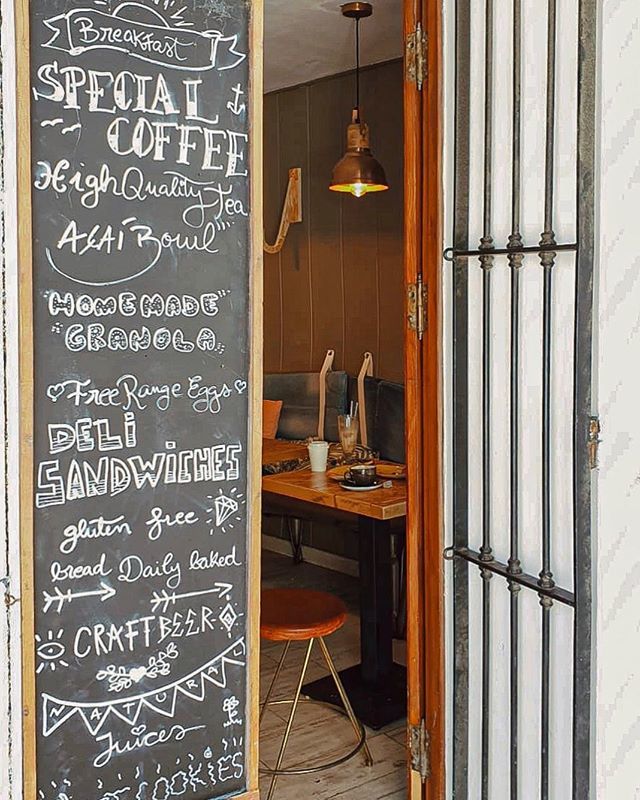 Breakfast
SPECIAL
COFFEE
High Quality Tea
AÇAÍ Bowl
HOMEMADE
GRANOLA
Free Range Eggs
DELI
SANDWICHES
gluten free
bread Daily baked
CRAFT BEER
NATURAL
Juices
COOKIES